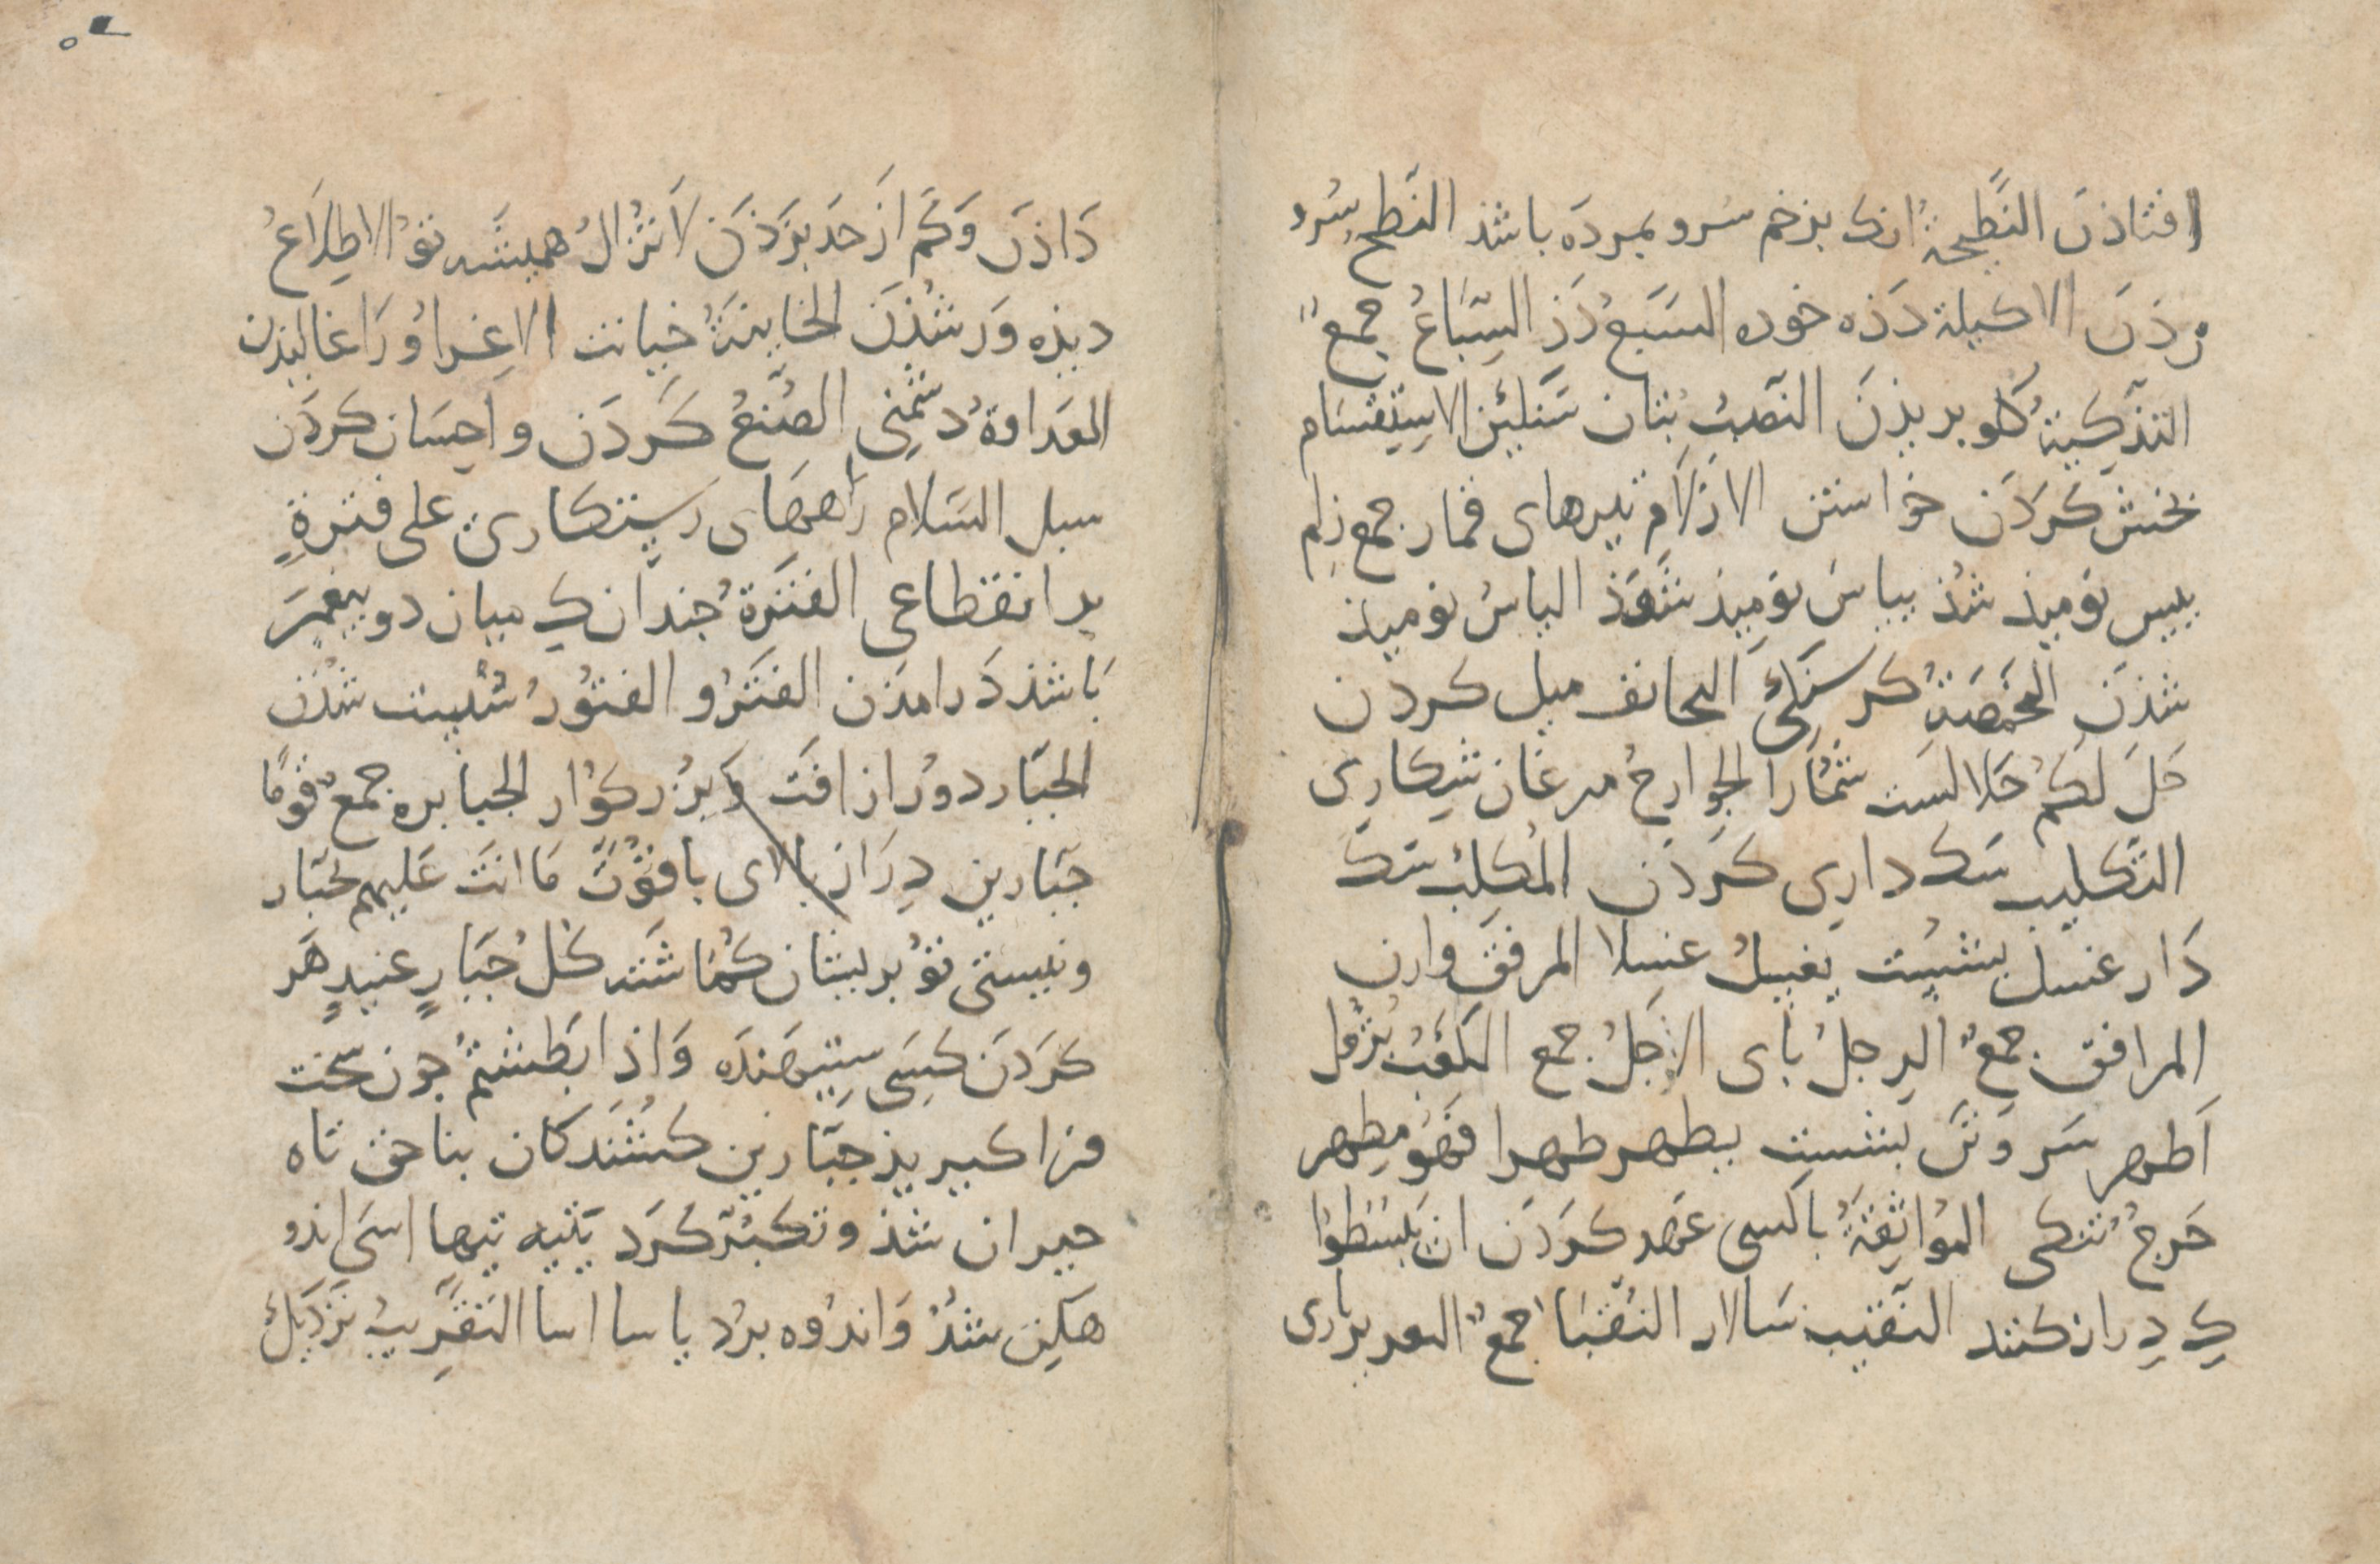 افتاذن النَّطِیحَةُ انک بزخم سُرو بمردَه باشذ النَّطحُ سُرو
زذَن الاکیلة دَذه خورده السَبعُ دَذ السِّبَاعُ جمعٌ
التذکِیَةُ گلو بریذنَ النُّصبُ بُتان سَنگین الاستِقسَام
بخش کردَن خواستن الازلَام تیرهای قمار جمع زلم
ییس نومیذ شذ ییاسُ نومیذ شَوَذ الیاسُ نومیذ
شذن المَخمَصَةُ گرسنَگی التجانف میل کردن
حَلَ لَکُم حَلالسَت شمَارا الجوارحُ مرغان شکاری
التَّکلیب سَک داری کَردَن المُکَلِّبُ سَک
دَار غسل بشُست یغسِلُ غسلا المرفق وارن
المرافق جمعٌ الرِجلُ بای الارجُلُ جمع الکَعَبُ بُژُول
اَطهر سَر وَتَن بشست یطهر طهرا فَهُو مطهر
حَرجُ تنکی المُواثقةُ باکسی عَهد کردَن ان یَبسُطوا
کِ دِراز کنند النَّقیب سَالار النُّقبَا جمعٌ التعزیر یاری
دَاذن وَکَم از حَد بزَذَن لاتزالُ همیشَه توُ الاطِلاعُ
دیذه وَر شذَن الخاینةُ خیانت الاغراوُ رَاغالیذن
العَداوةُ دشمنی الصُنعُ کَردَن واحِسَان کردَن
سبل السَلام راههَای رستکاری علی فترةٍ
بر انقطاعی الفترَةُ جندان کِ میان دو پیغمبَر
بَاشذ دَرامذن الفتَرُو الفتُورُ سُست شُذن
الجَبّار دوُر از افَت وَبزُرکوَار الجبابره جمعٌ قومًا
جَبّارین دِرَاز بالای باقوُّت مَا انتَ عَلیهم بجَبّار
ونیستی توُ بریشان کُماشته کلُ جَبّارٍ عنیدٍ هَر
کردَن کسَی ستیهنده وَاذا بَطشتمُ جون سَخت
فرا کیریذ جَبّارین کشَندَکان بناحق تاه
حیران شذ وتکبُّر کَرد یَتیه تیها اسَی اندو
هکین شذُ وَاندُوه برُد یاسا اسا التقریبُ نَزدیکُ